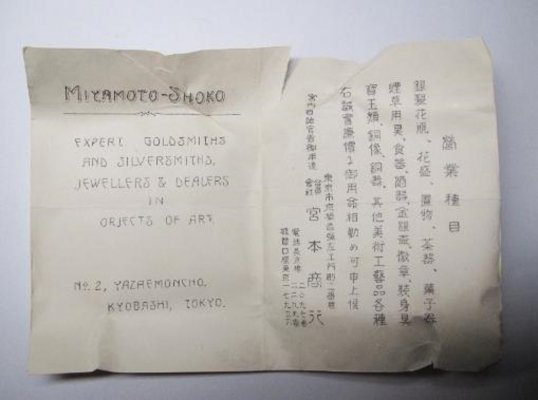 MIYAMOTO-SHOKO
EXPERT GOLDSMITHS
AND SILVERSMITHS,
JEWELLERS & DEALERS
IN
OBJECTS OF ART.
No. 2, YAZAEMONCHO,
KYOBASHI, TOKYO.
營業種目
銀製花瓶、花盛、置物、茶器、菓子器
煙草用具、食器、酒器、金銀盃、徽章、裝身具
寶玉類、銅像、銅器、其他美術工藝品各種
右誠實廉價ニ御用命相勤め可申上候
東京市京橋區彌左エ門町二番地
合資會社 宮本商行